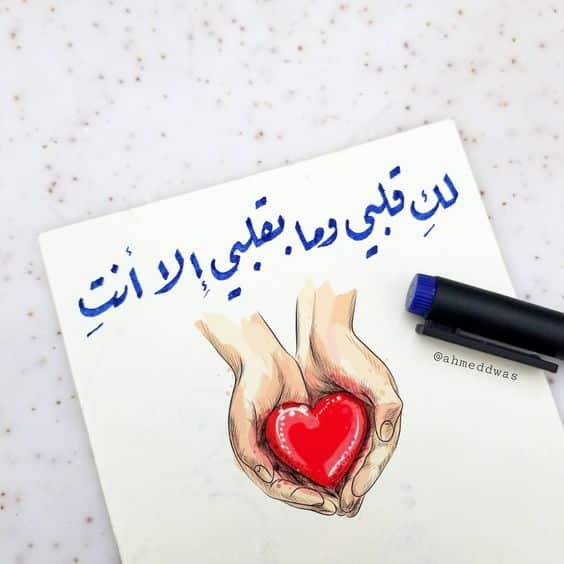 لكِ قلبي وما بقلبي إلا أنتِ
@ahmeddwas